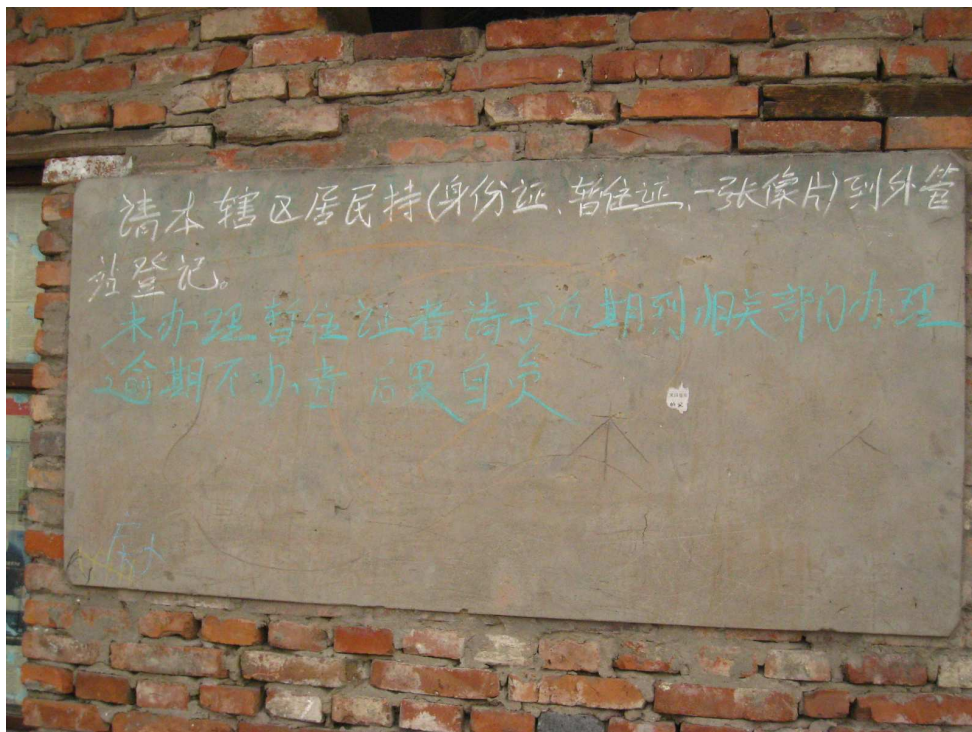 请本辖区居民持(身份证、暂住证、一张像片)到外管
站登记。
未办理暂住证者请于近期到相关部门办理
逾期不办者后果自负